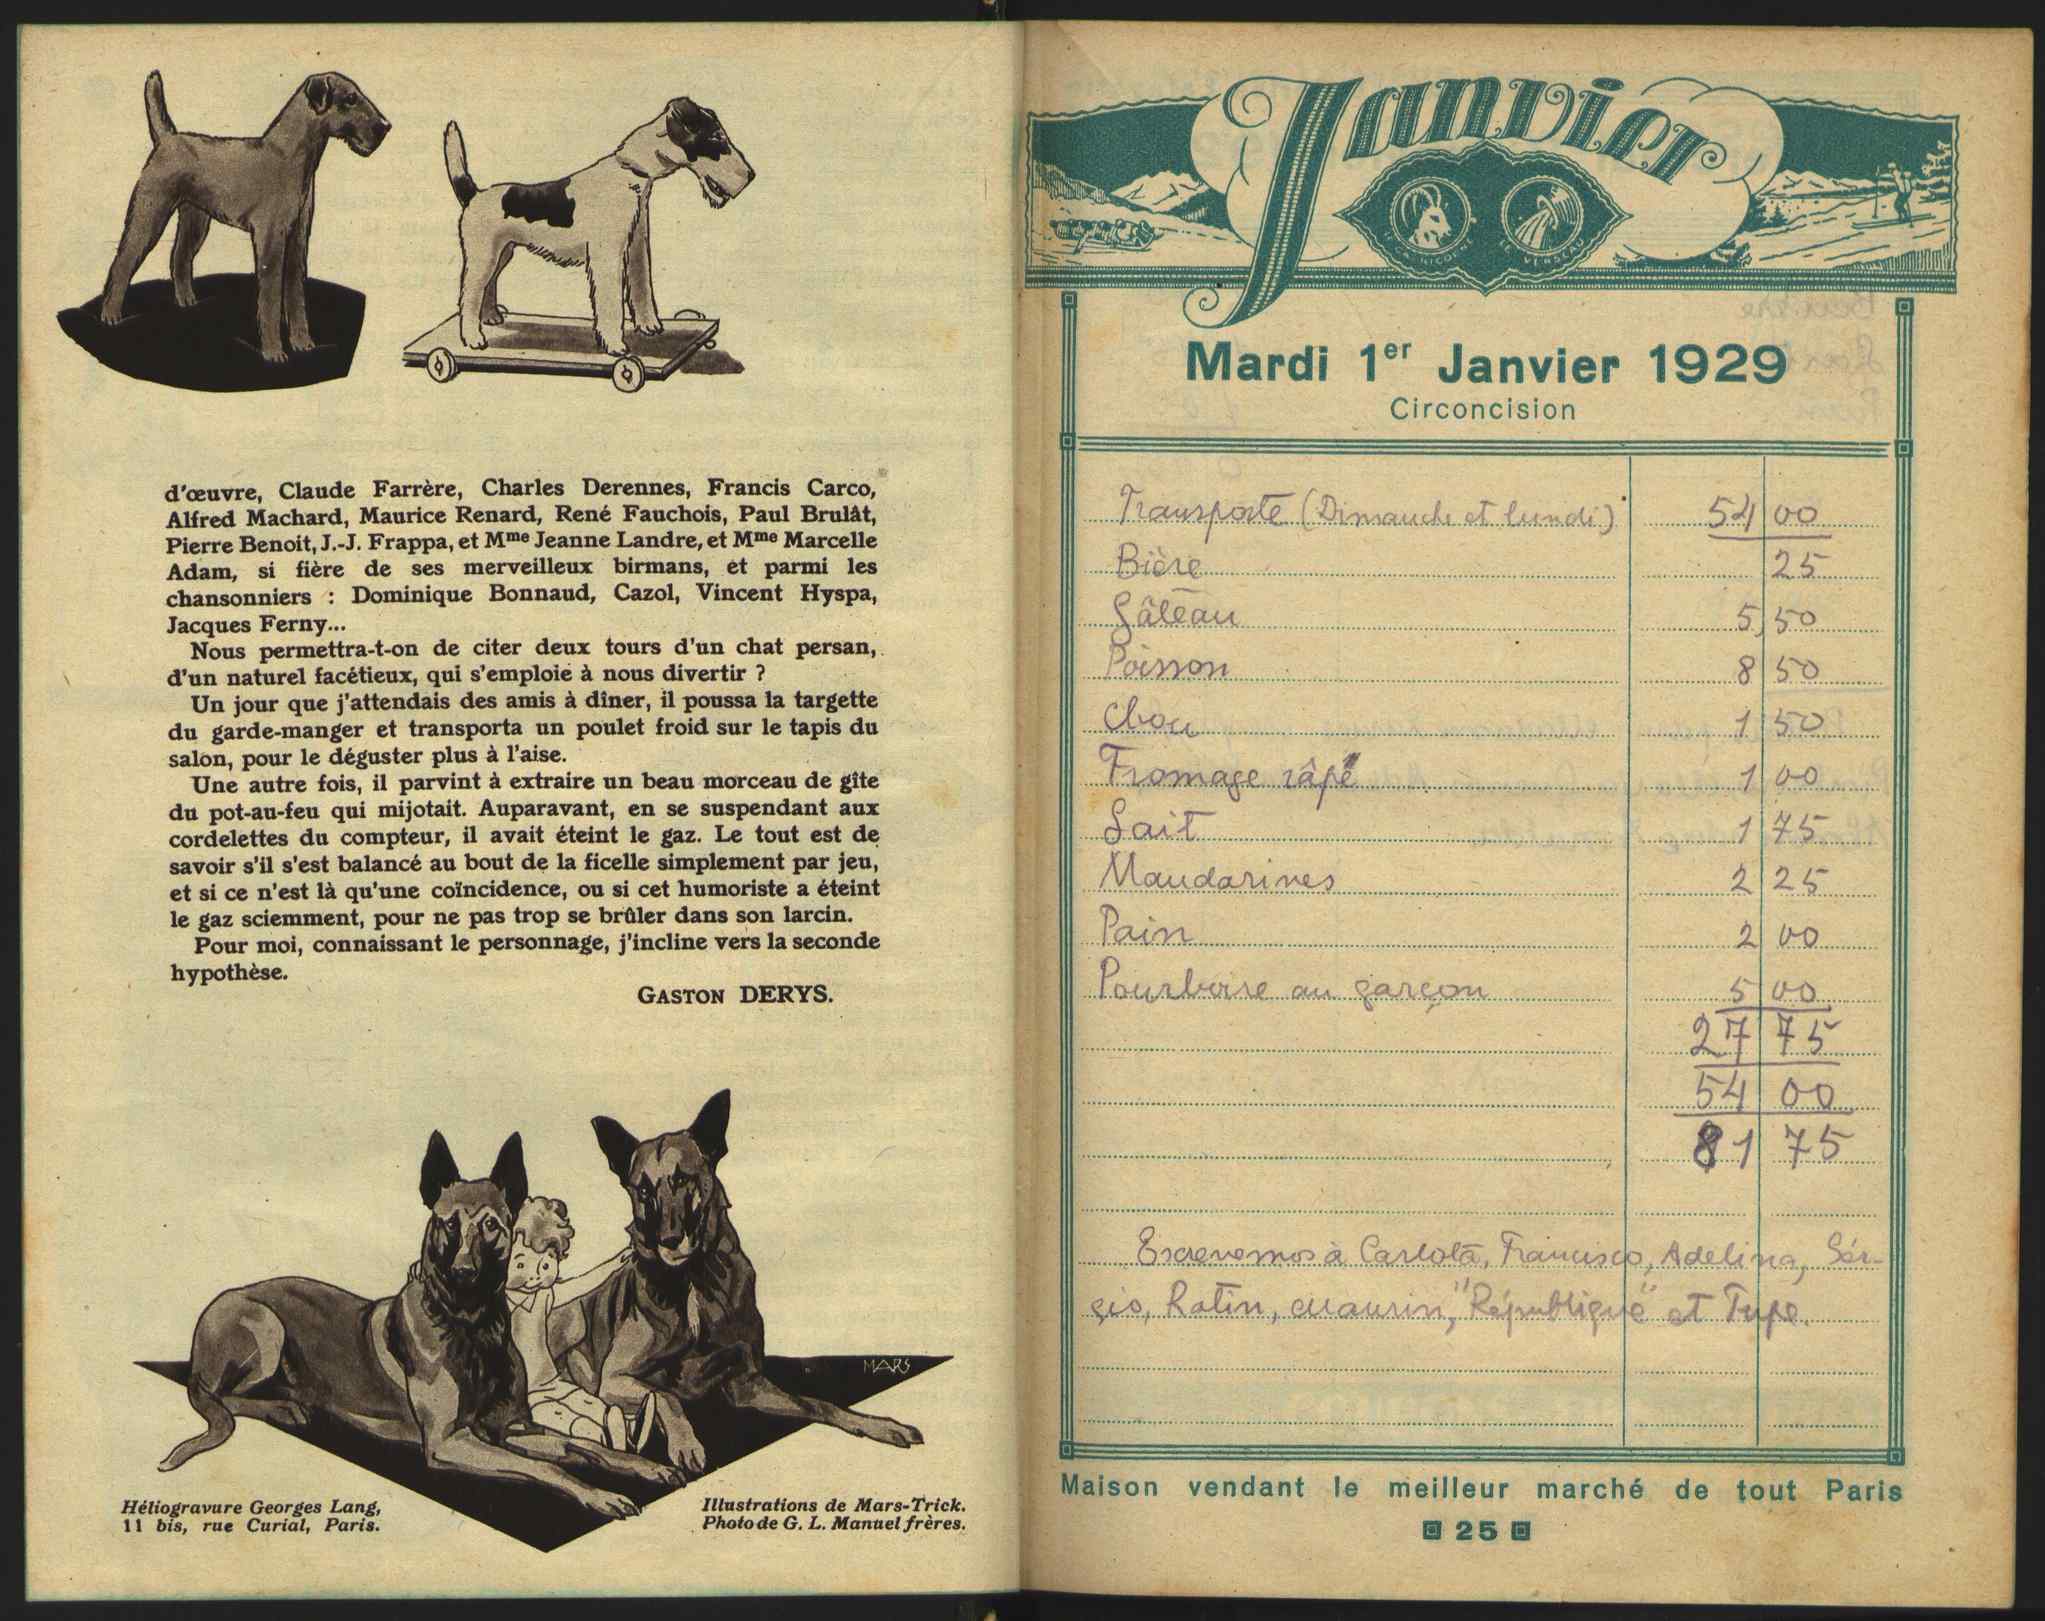 d'œuvre, Claude Farrère, Charles Derennes, Francis Carco,
Alfred Machard, Maurice Renard, René Fauchois, Paul Brulât,
Pierre Benoit, J.-J. Frappa, et Mme Jeanne Landre, et Mme Marcelle
Adam, si fière de ses merveilleux birmans, et parmi les
chansonniers : Dominique Bonnaud, Cazol, Vincent Hyspa,
Jacques Ferny...
Nous permettra-t-on de citer deux tours d'un chat persan,
d'un naturel facétieux, qui s'emploie à nous divertir ?
Un jour que j'attendais des amis à dîner, il poussa la targette
du garde-manger et transporta un poulet froid sur le tapis du
salon, pour le déguster plus à l'aise.
Une autre fois, il parvint à extraire un beau morceau de gîte
du pot-au-feu qui mijotait. Auparavant, en se suspendant aux
cordelettes du compteur, il avait éteint le gaz. Le tout est de
savoir s'il s'est balancé au bout de la ficelle simplement par jeu,
et si ce n'est là qu'une coïncidence, ou si cet humoriste a éteint
le gaz sciemment, pour ne pas trop se brûler dans son larcin.
Pour moi, connaissant le personnage, j'incline vers la seconde
hypothèse.
GASTON DERYS.
MARS
Héliogravure Georges Lang,
11 bis, rue Curial, Paris.
Illustrations de Mars-Trick.
Photo de G. L. Manuel frères.
Janvier
LE CAPRICORNE LE VERSEAU
Mardi 1er Janvier 1929
Circoncision
Transporte (Dimanche et lundi) 54 00
Bière 25
Gâteau 5,50
Poisson 8 50
Chou 1 50
Fromage râpé 1 00
Lait 1 75
Mandarines 2 25
Pain 2 00
Pourboire au garçon 5 00
27 75
54 00
81 75
Escrevemos à Carlota, Francisco, Adelina, Sér-
gio, Ratin, Maurin, "République" et Tupe.
Maison vendant le meilleur marché de tout Paris
25